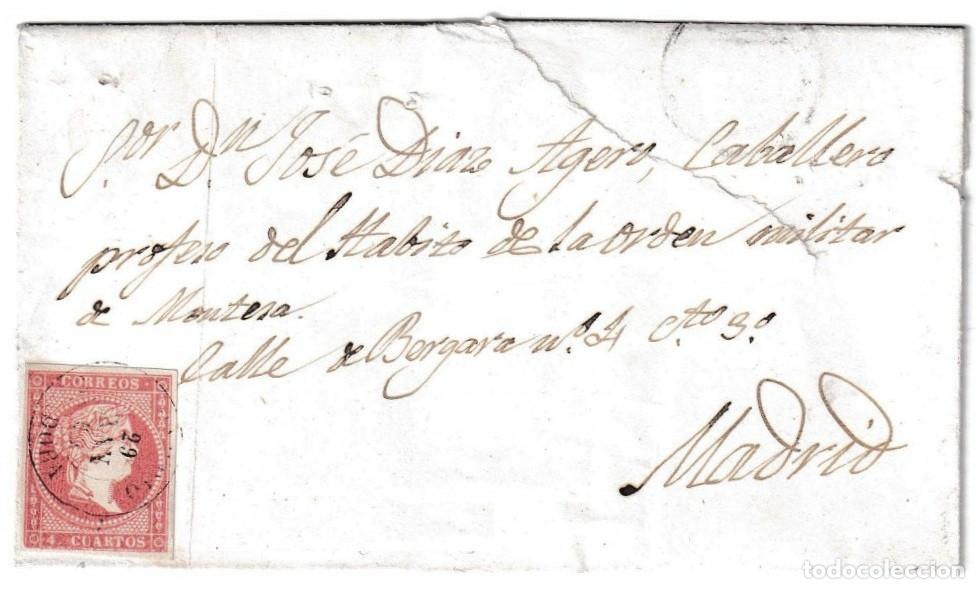 Sor. Dn José Diaz Agero, Caballero
profeso del Habito de la Orden militar
de Montesa.
Calle de Bergara nº. 4 cto. 3º
Madrid
CORREOS
29
4 CUARTOS
todocoleccion